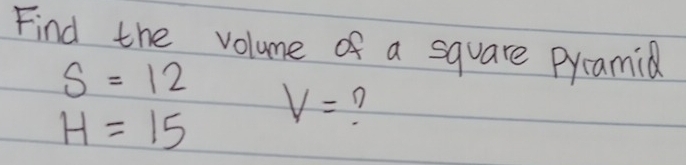 Find the volume of a square Pyramid
S = 12
V = ?
H = 15